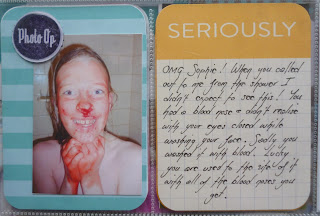 Photo Op
SERIOUSLY
OMG Sophie! When you called
out to me from the shower I
didn't expect to see this! You
had a blood nose & didn't realise
with your eyes closed while
washing your face. Sadly you
washed it with blood. Lucky
you are used to the site of it
with all of the blood noses you
get!